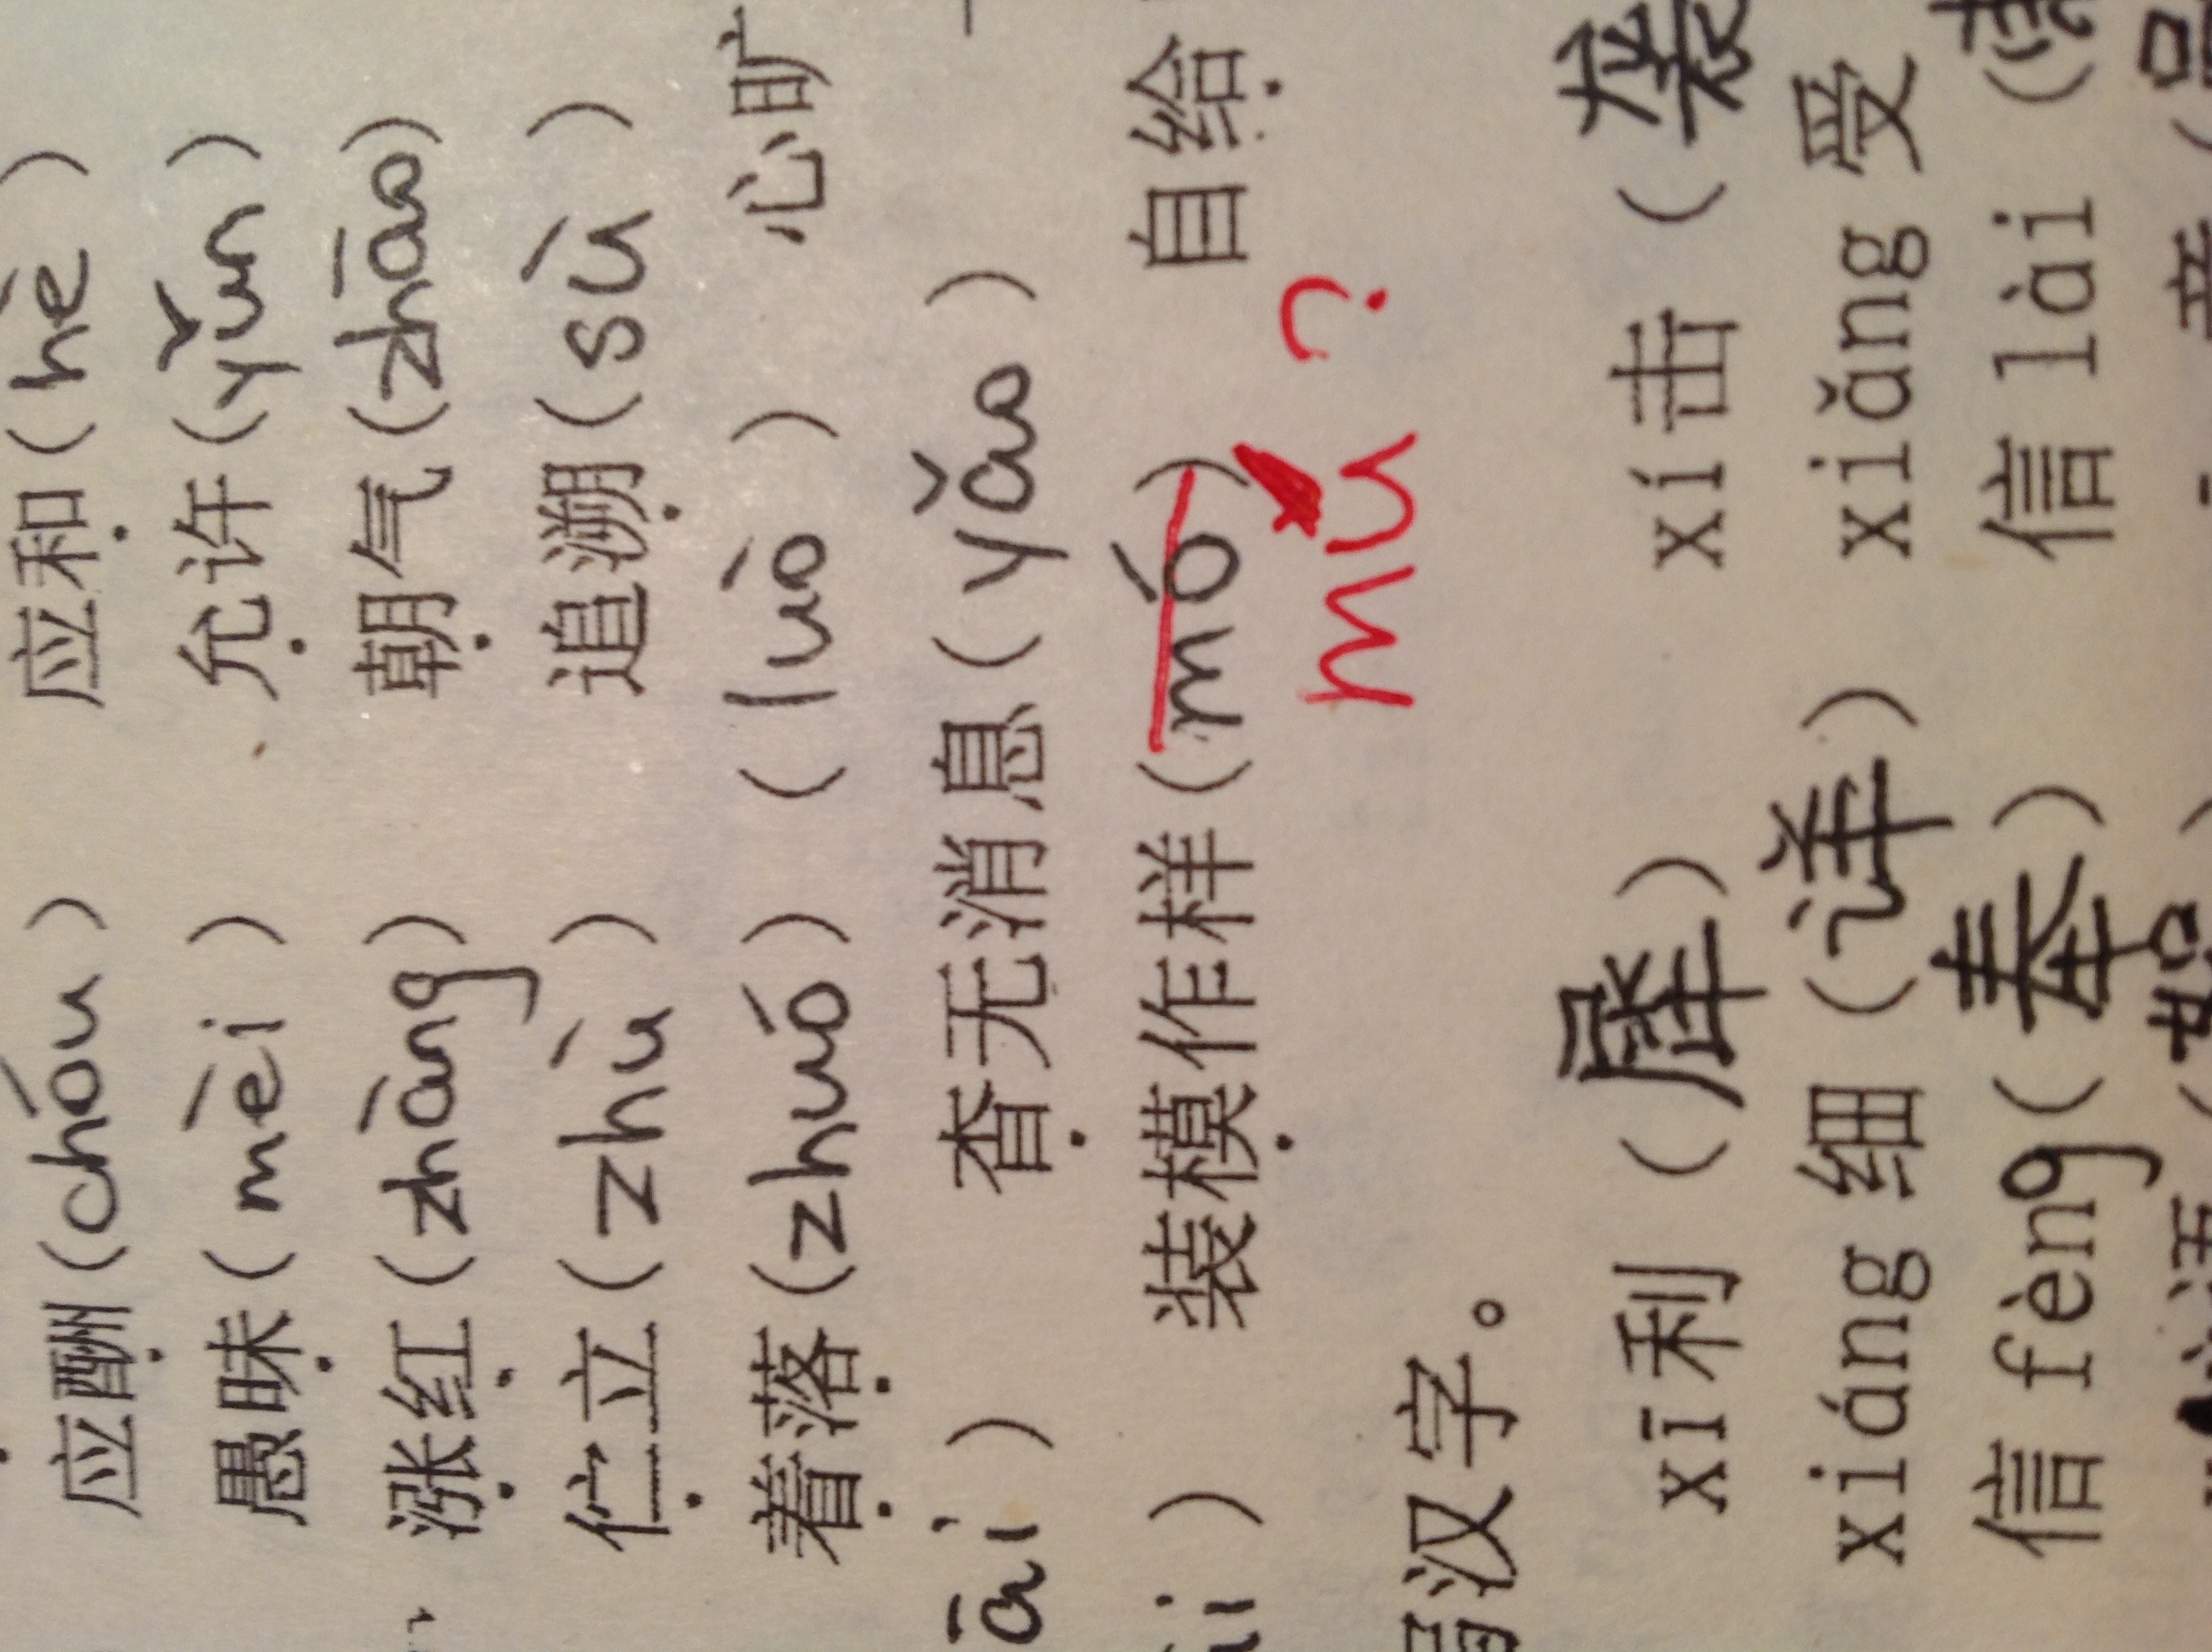 应酬(chóu) 应和(hè)
愚昧(mèi) 允许(yǔn)
涨红(zhàng) 朝气(zhāo)
伫立(zhù) 追溯(sù)
着落(zhuó)(luò) 心旷
āi) 杳无消息(yǎo)
i) 装模作样(mó) 自给
mú?
汉字。
xī利(犀) xí击(袭
xiáng细(详) xiǎng受
信fèng(奉) 信lài(
语(絮 音(